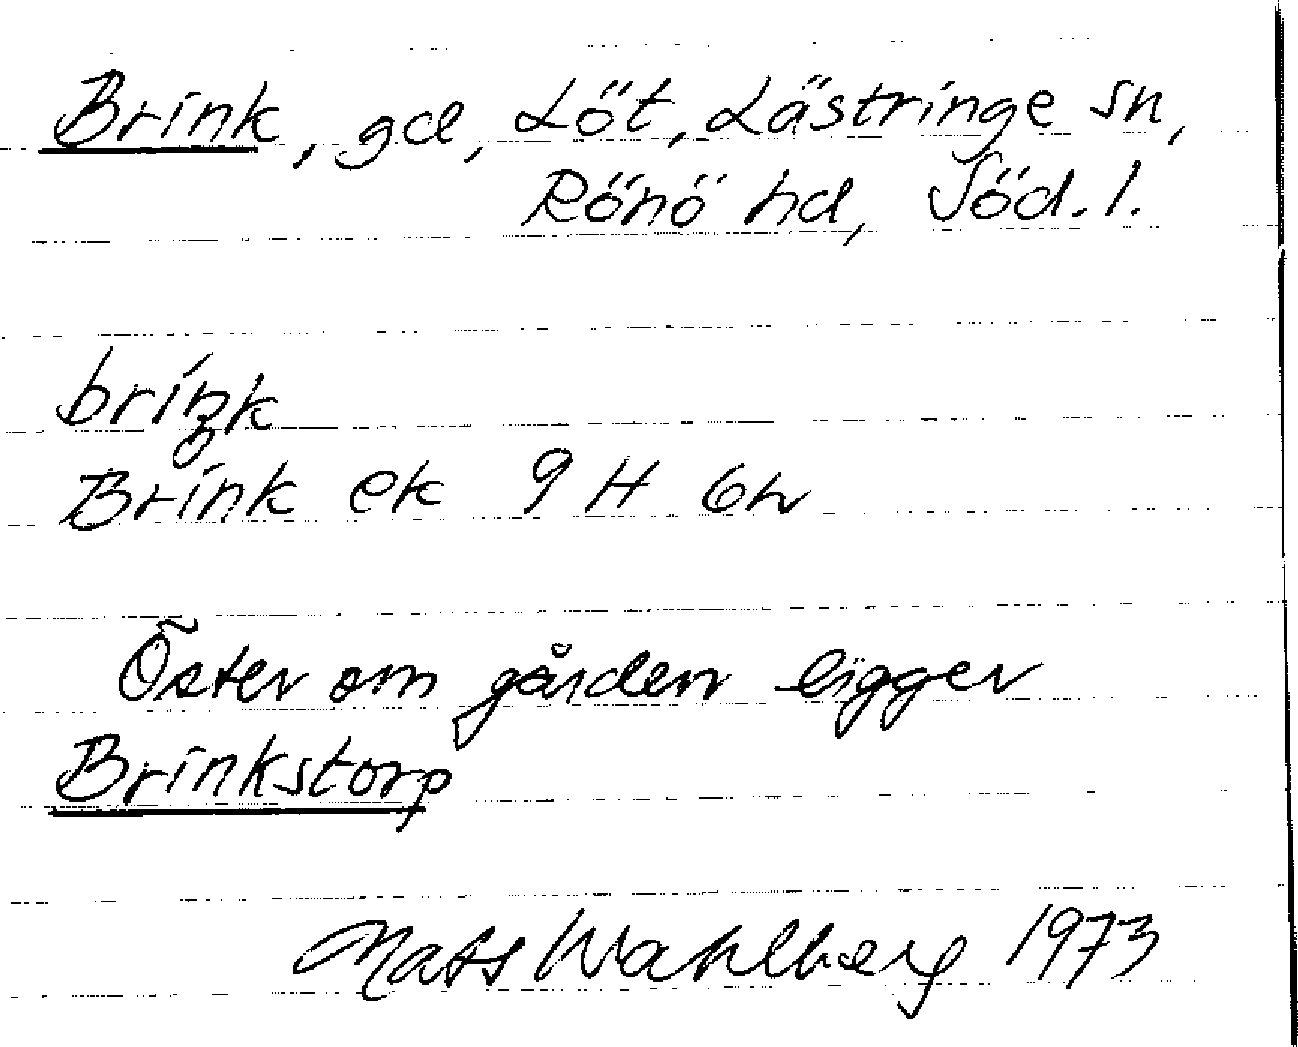 Brink, gd, Löt, Lästringe sn,
Rönö hd, Söd. l.
bríŋk
Brink ek 9 H 6h
Öster om gården ligger
Brinkstorp
Mats Wahlberg 1973